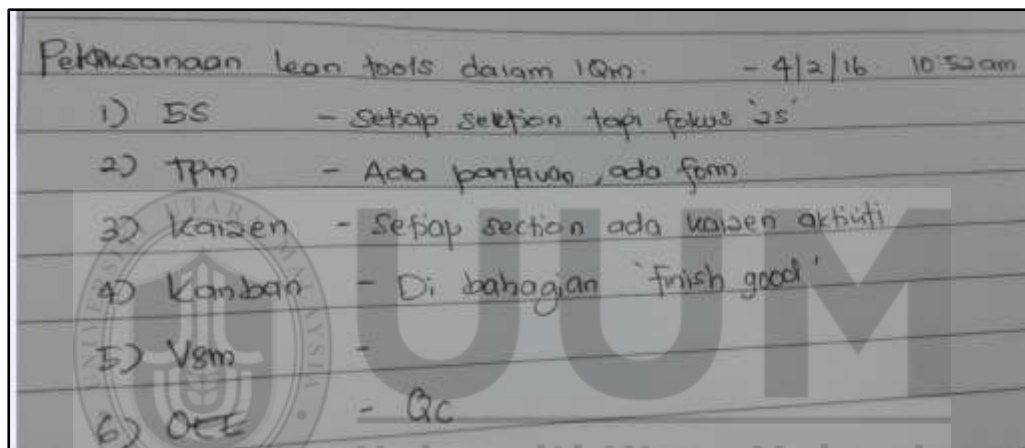 Pelaksanaan lean tools dalam IQm. - 4/2/16 10:52 am
1) 5S - Setiap seksion tapi fokus '2S'
2) TPm - Ada pantauan, ada form
3) Kaizen - Setiap section ada kaizen aktiviti
4) Kanban - Di bahagian 'finish good'
5) VSm -
6) OEE - QC
UUM
UNIVERSITI UTARA MALAYSIA